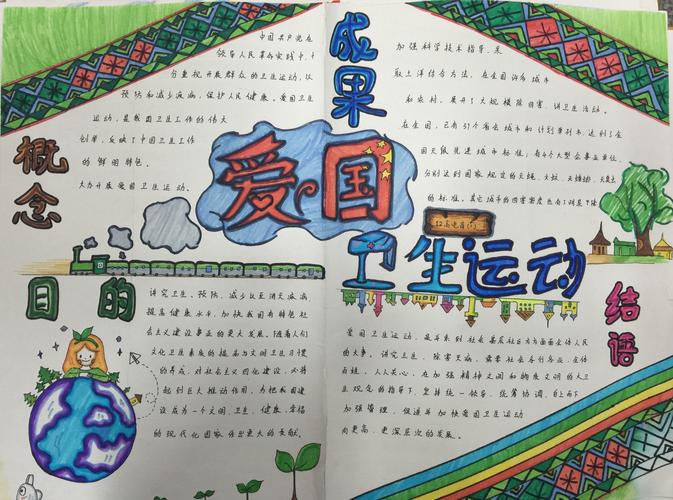 概念
中国共产党在
领导人民革命实践中,十
分重视开展群众的卫生运动,以
预防和减少疾病,保护人民健康。爱国卫生
运动,是我国卫生工作的伟大
创举,反映了中国卫生工作
的鲜明特色。
大力开展爱国卫生运动。
成果
加强科学技术指导,采
取土洋结合方法,在全国许多城市
和农村,展开了大规模除四害,讲卫生活动。
在全国,已有31个省会城市和计划单列市,达到了全
国灭鼠先进城市标准;有4个大型企事业单位,
分别达到国家规定的灭蝇、灭蚊、灭蟑螂、灭臭虫
的标准。其它城市的四害密度也有了明显下降
爱国
卫生运动
目的
讲究卫生、预防、减少以至消灭疾病,
提高健康水平,加快我国有特色社
会主义建设事业的更大发展。随着人们
文化卫生素质的提高与文明卫生习惯
的养成,对社会主义四化建设,必将
起到巨大推动作用,为把我国建
设成为一个文明、卫生、健康、幸福
的现代化国家作出更大的贡献。
结语
爱国卫生运动,是牵系到社会基层社会方方面面全体人民
的大事。讲究卫生、除害灭病,需要社会各行各业,全体
百姓,人人关心,在加强精神文明和物质文明的大卫
生观念的指导下,坚持统一领导,统筹协调,自上而下
加强管理,促进并加快爱国卫生运动
向更高,更深层次的发展。